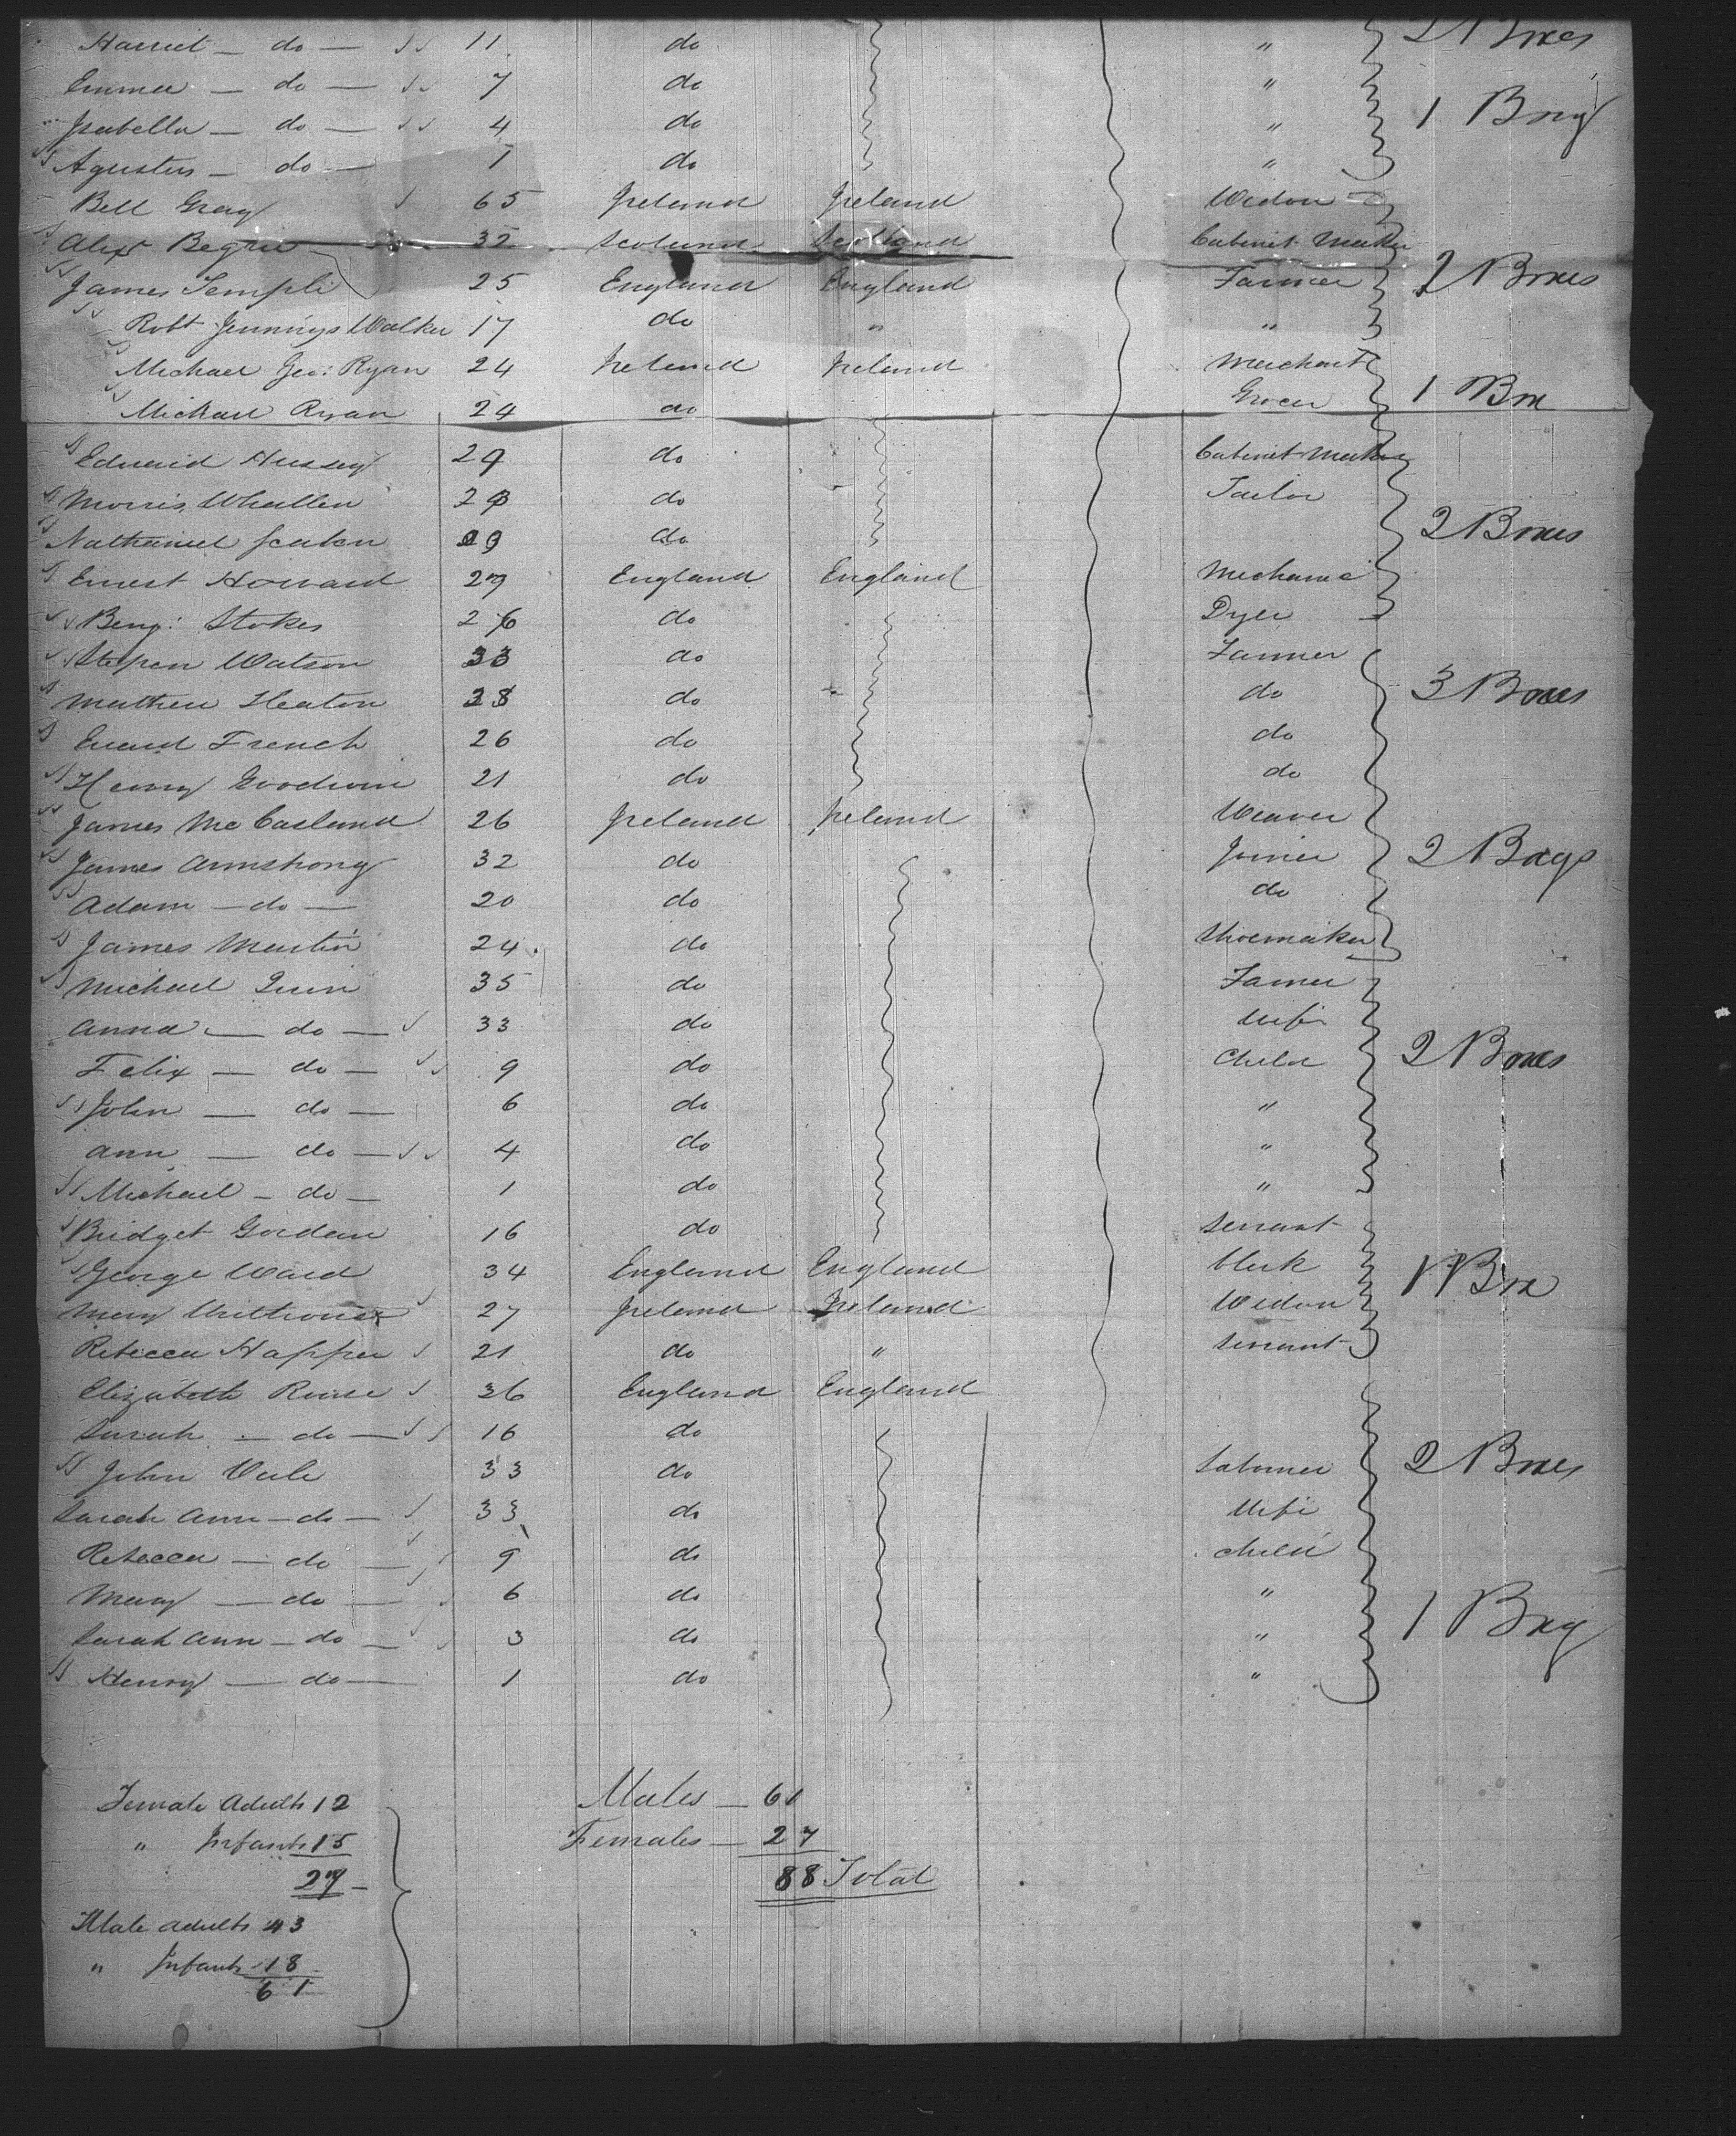 Harriet — do — 11 do " 2 Boxes
Emma — do — 7 do "
Isabella — do — 4 do " 1 Bag
Agustus — do — 1 do "
Bell Gray 65 Ireland Ireland Widow
Alexr Begrie 32 Scotland Scotland Cabinet Maker
James Temple 25 England England Farmer 2 Boxes
Robt Jennings Walker 17 do " "
Michael Geo: Ryan 24 Ireland Ireland Merchant
Michael Ryan 24 do Grocer 1 Box
Edward Hussey 29 do Cabinet Maker
Morris Whallen do Tailor
Nathaniel do 2 Boxes
Ernest Howard 29 England England Mechanic
Benj: Stokes 26 do Dyer
Stepen Watson 33 do Farmer
Mathew Heaton 38 do do 3 Boxes
French 26 do do
Henry Goodwin 21 do do
James McCasland 26 Ireland Ireland Weaver
James Armstrong 32 do Joiner 2 Bags
Adam — do — 20 do do
James Martin 24 do Shoemaker
Michael Quin 35 do Famer
Anna — do — 33 do Wife
Felix — do — 9 do Child 2 Boxes
John — do — 6 do "
Ann — do — 4 do "
Michael — do — 1 do "
Bridget Gordan 16 do Servant
George Ward 34 England England Clerk 1 Box
Mary 27 Ireland Ireland Widow
Rebecca Happer 21 do " Servant
Elizabeth 36 England England
Sarah — do — 16 do
John Vale 33 do Labourer 2 Boxes
Sarah Ann — do — 33 do Wife
Rebecca — do — 9 do Child
Mary — do — 6 do "
Sarah Ann — do — 3 do " 1 Bag
Henry — do — 1 do "
Female Adults 12
" Infants 15
27
Male Adults 43
" Infants 18
61
Males — 61
Females — 27
88 Total